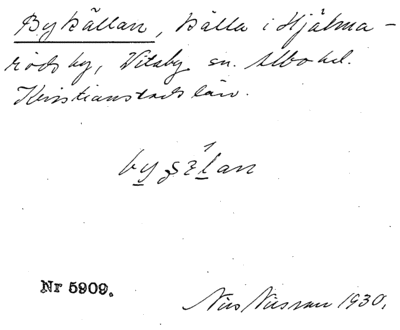 Bykällan, källa i Hjälma-
röds by, Vitaby sn. Albo hd.
Kristianstads län.
Nr 5909.
Nils Nilsson 1930.